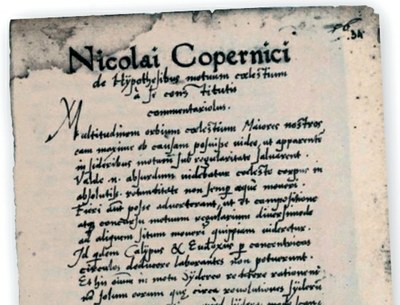 Nicolai Copernici
de Hypothesibus motuum cœlestium
à se constitutis
commentariolus.
Multitudinem orbium cœlestium Maiores nostros
eam maxime ob causam posuisse video, ut apparentē
in sideribus motum sub regularitate saluarent.
Valde n. absurdum videbatur cœleste corpus in
absolutiss. rotunditate non semper æque moueri.
Fieri aut posse aduerterant, ut et compositione
atq concursu motuum regularium diuersimode
ad aliquem situm moueri quippiam videretur.
Id qdem Calippus & Eudoxus p concentricos
circulos deducere laborantes non potuerunt
Et his oium in motu sydereo reddere rationem
nō solum eorum quæ circa reuolutiones syderum